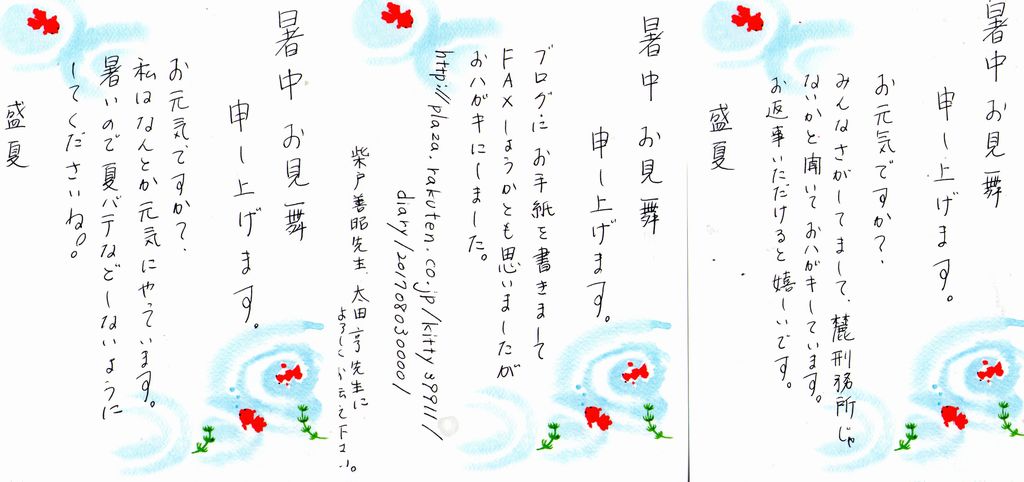 暑中お見舞
申し上げます。
お元気ですか?
みんなさがしてまして、麓刑務所じゃ
ないかと聞いておハガキしています。
お返事いただけると嬉しいです。
盛夏
暑中お見舞
申し上げます。
ブログにお手紙を書きまして
FAXしようかとも思いましたが
おハガキにしました。
http://plaza.rakuten.co.jp/kitty39911/
diary/201708030000/
柴戸善昭先生、太田亨先生に
よろしくお伝え下さい。
暑中お見舞
申し上げます。
お元気ですか?
私はなんとか元気にやっています。
暑いので夏バテなどしないように
してくださいね。
盛夏